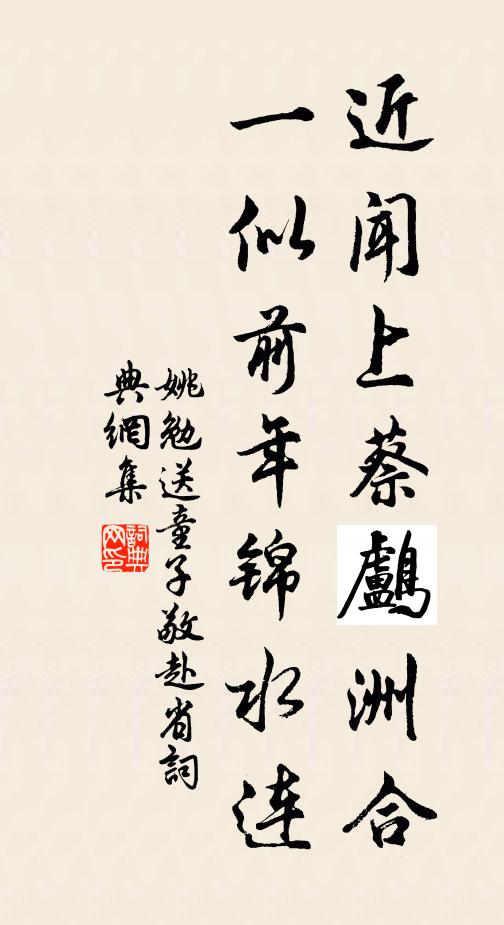 近闻上蔡鸕洲合
一似前年锦水连
姚勉送童子敬赴省詞
典網集
詞典网印